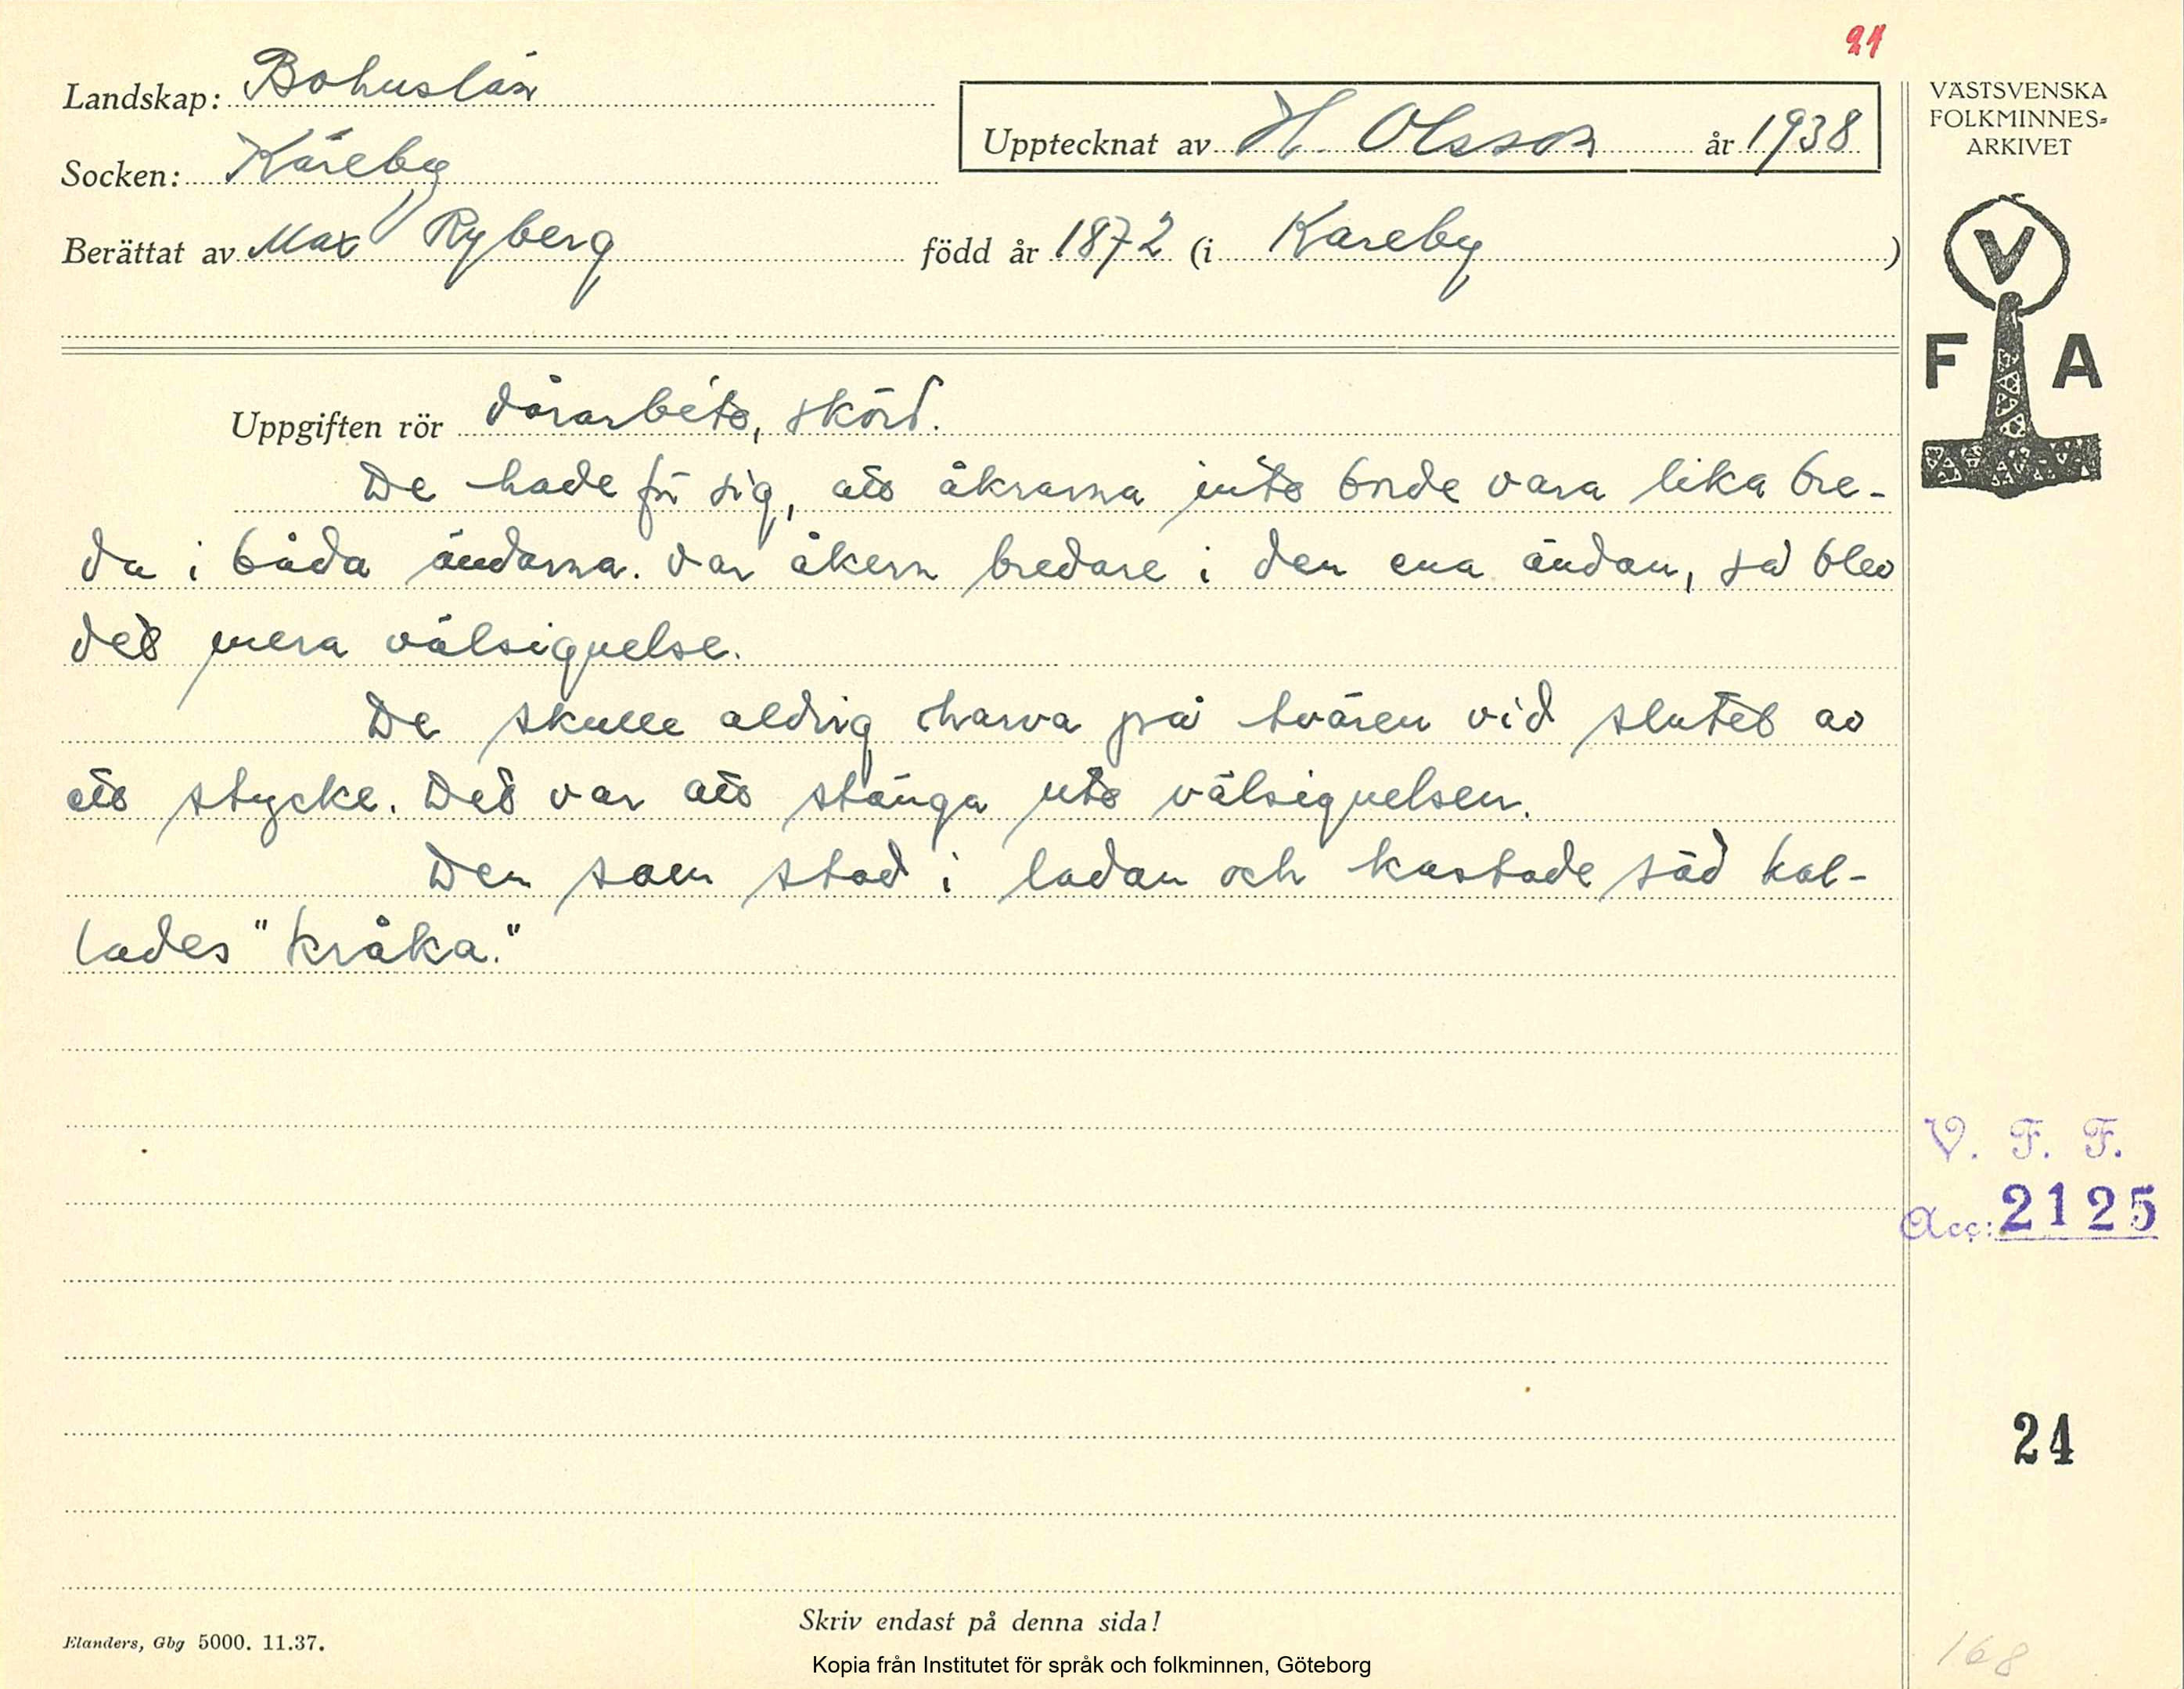 21
Landskap: Bohuslän
Upptecknat av H. Olsson år 1938
VÄSTSVENSKA
FOLKMINNES-
ARKIVET
Socken: Kareby
Berättat av Max Ryberg född år 1872 (i Kareby)
V
F A
Uppgiften rör vårarbete, skörd.
De hade för sig, att åkrarna inte borde vara lika bre-
da i båda ändarna. Var åkern bredare i den ena ändan, så blev
det mera välsignelse.
De skulle aldrig harva på tvären vid slutet av
ett stycke. Det var att stänga ute välsignelsen.
Den som stod i ladan och kastade säd kal-
lades "kråka."
V. F. F.
Acc: 2125
24
Skriv endast på denna sida!
Elanders, Gbg 5000. 11.37.
Kopia från Institutet för språk och folkminnen, Göteborg
168